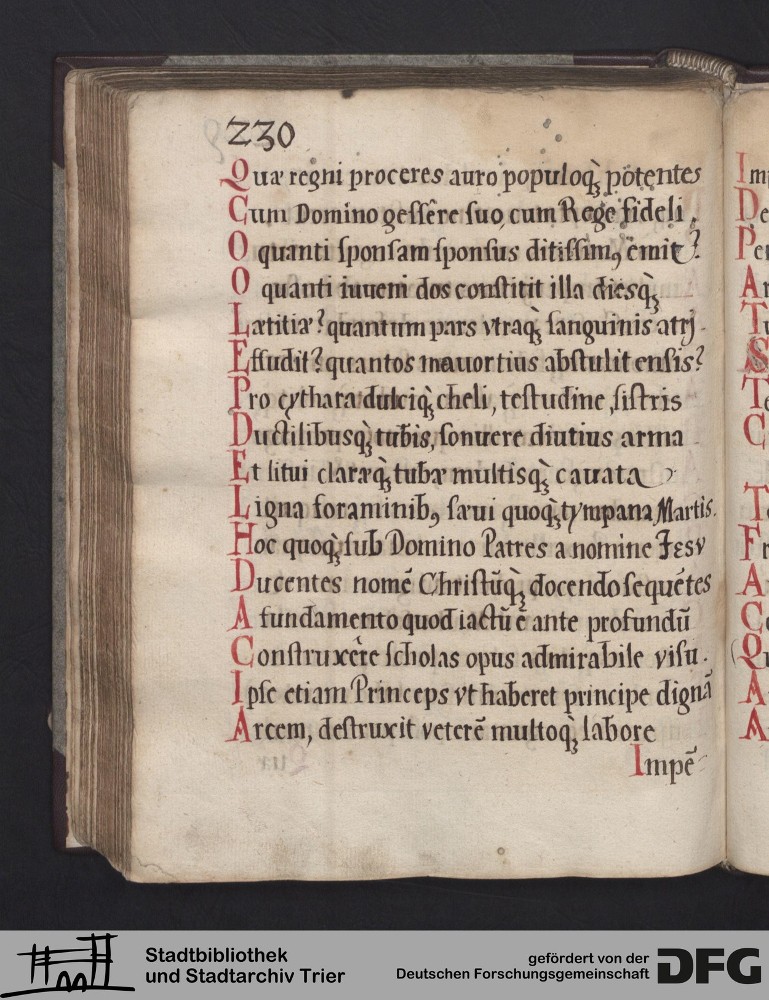 230
Quæ regni proceres auro populoqꝫ potentes
Cum Domino gessêre suo, cum Rege fideli,
O quanti sponsam sponsus ditissimꝰ emit?
O quanti iuueni dos constitit illa diesqꝫ
Lætitiæ? quantum pars vtraqꝫ sanguinis atrj
Effudit? quantos mauortius abstulit ensis?
Pro cythara dulciqꝫ cheli, testudine, sistris
Ductilibusqꝫ tubis, sonuere diutius arma
Et litui claræqꝫ tubæ multisqꝫ cauata
Ligna foraminibꝰ sæui quoqꝫ tympana Martis.
Hoc quoqꝫ sub Domino Patres a nomine Iesv
Ducentes nomē Christūqꝫ docendo sequētes
A fundamento quod iactū ē ante profundū
Construxêre scholas opus admirabile visu.
Ipse etiam Princeps vt haberet principe dignā
Arcem, destruxit veterē multoqꝫ labore
Impē
Im
De
Per
A
Tu
S
Te
C
T
Fr
A
Co
Qu
A
A
Stadtbibliothek
und Stadtarchiv Trier
gefördert von der
Deutschen Forschungsgemeinschaft
DFG